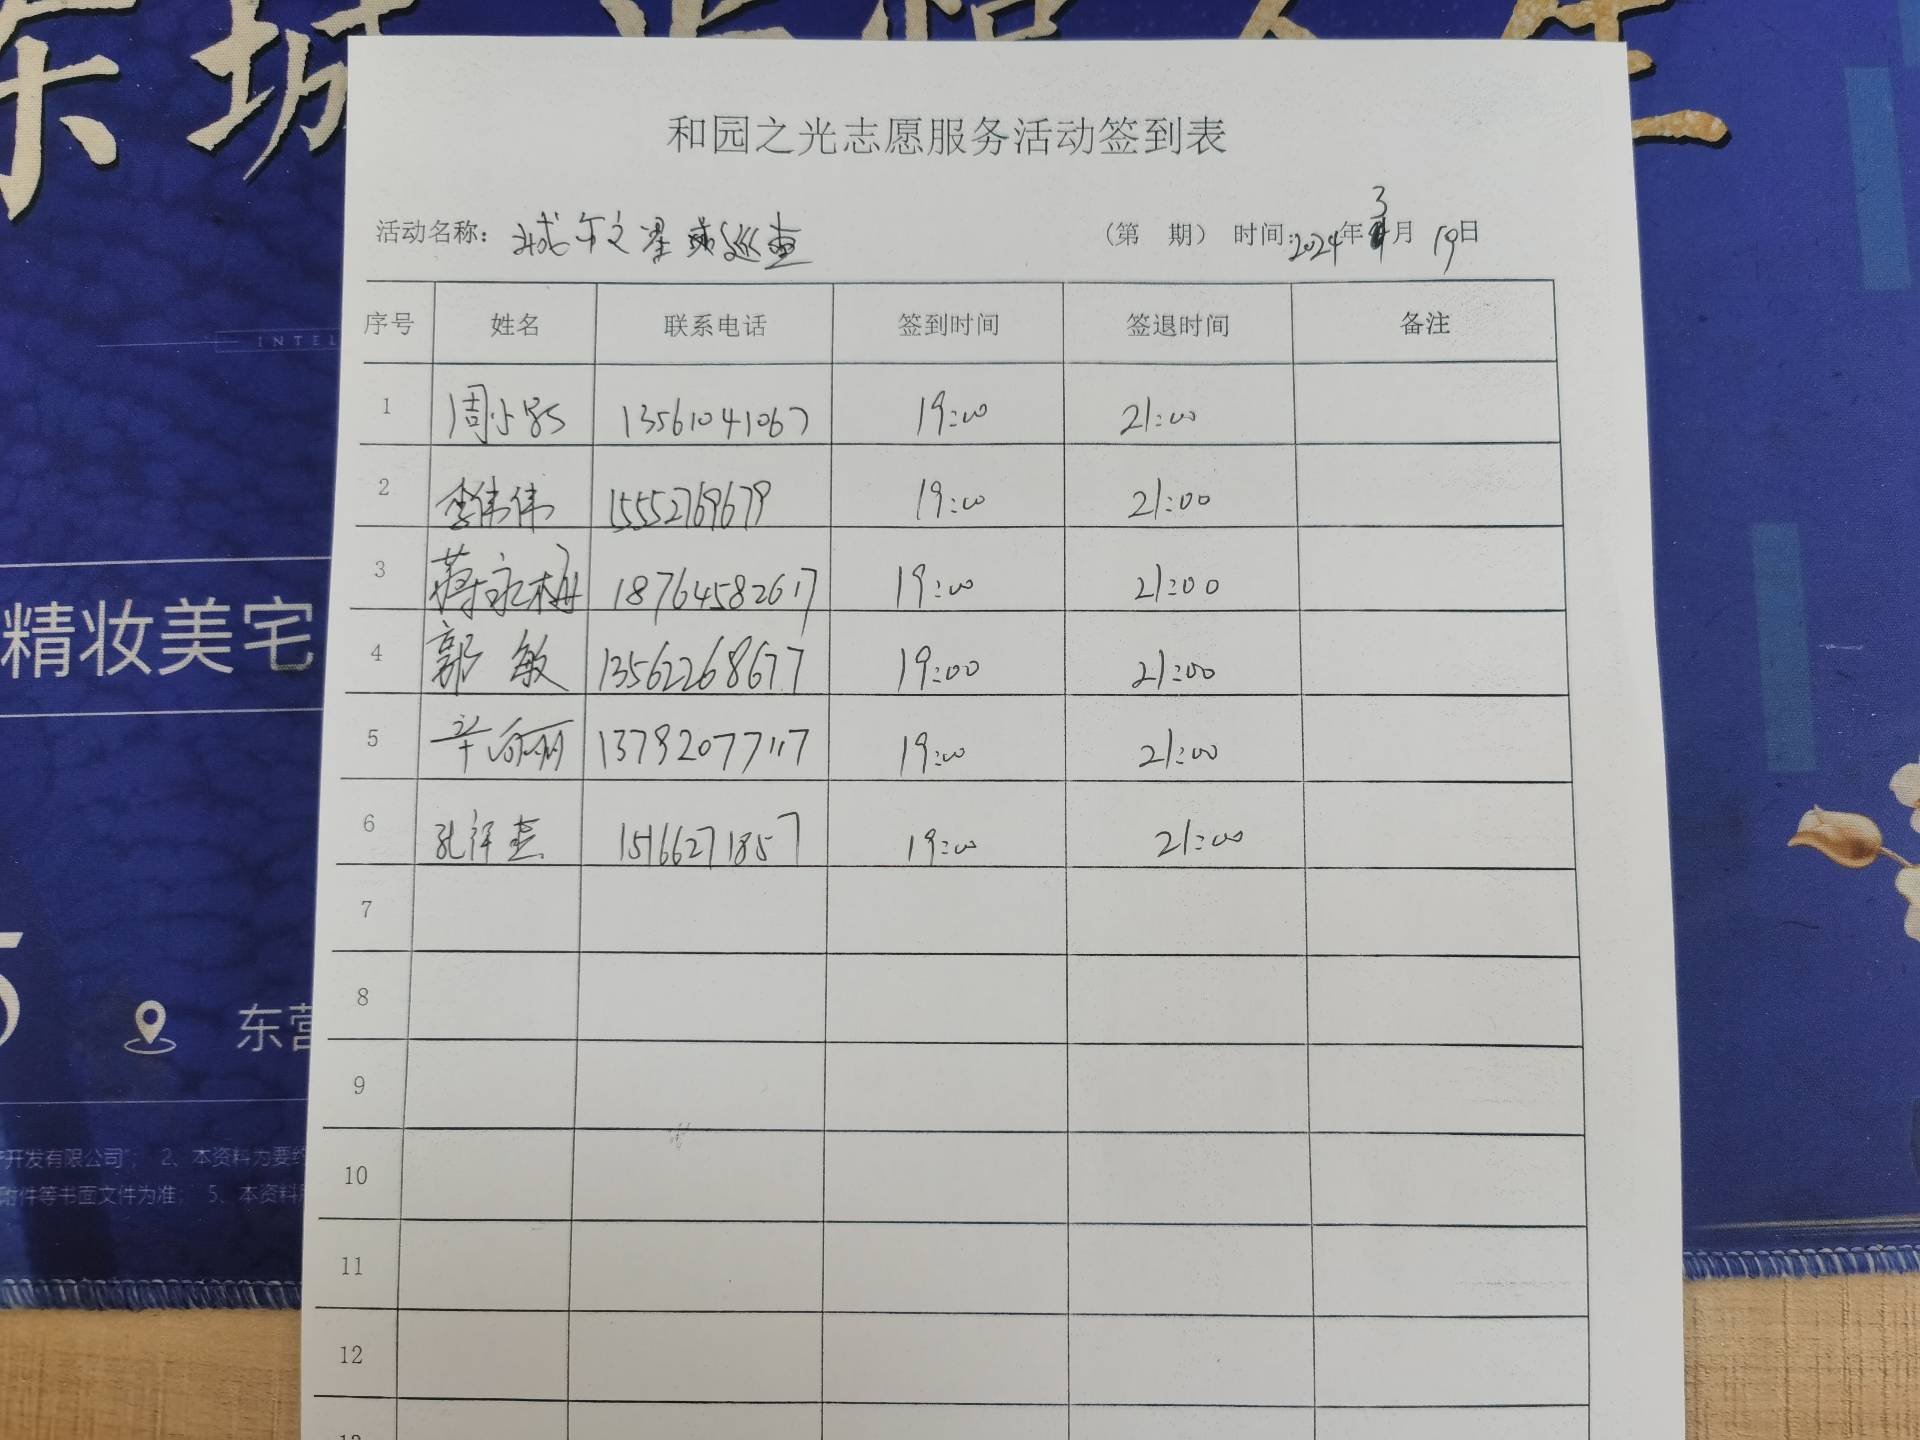 东城
INTEL
精妆美宅
5
东营
开发有限公司"； 2、本资料为要约
附件等书面文件为准； 5、本资料
和园之光志愿服务活动签到表
活动名称： 巡查 （第 期） 时间：2024年3月19日
序号 姓名 联系电话 签到时间 签退时间 备注
1 周小 13561041067 19:00 21:00
2 李伟伟 15552769679 19:00 21:00
3 蒋永梅 18764582617 19:00 21:00
4 郭敏 13562268677 19:00 21:00
5 辛向丽 13792077117 19:00 21:00
6 孔祥杰 15166271857 19:00 21:00
7
8
9
10
11
12
13